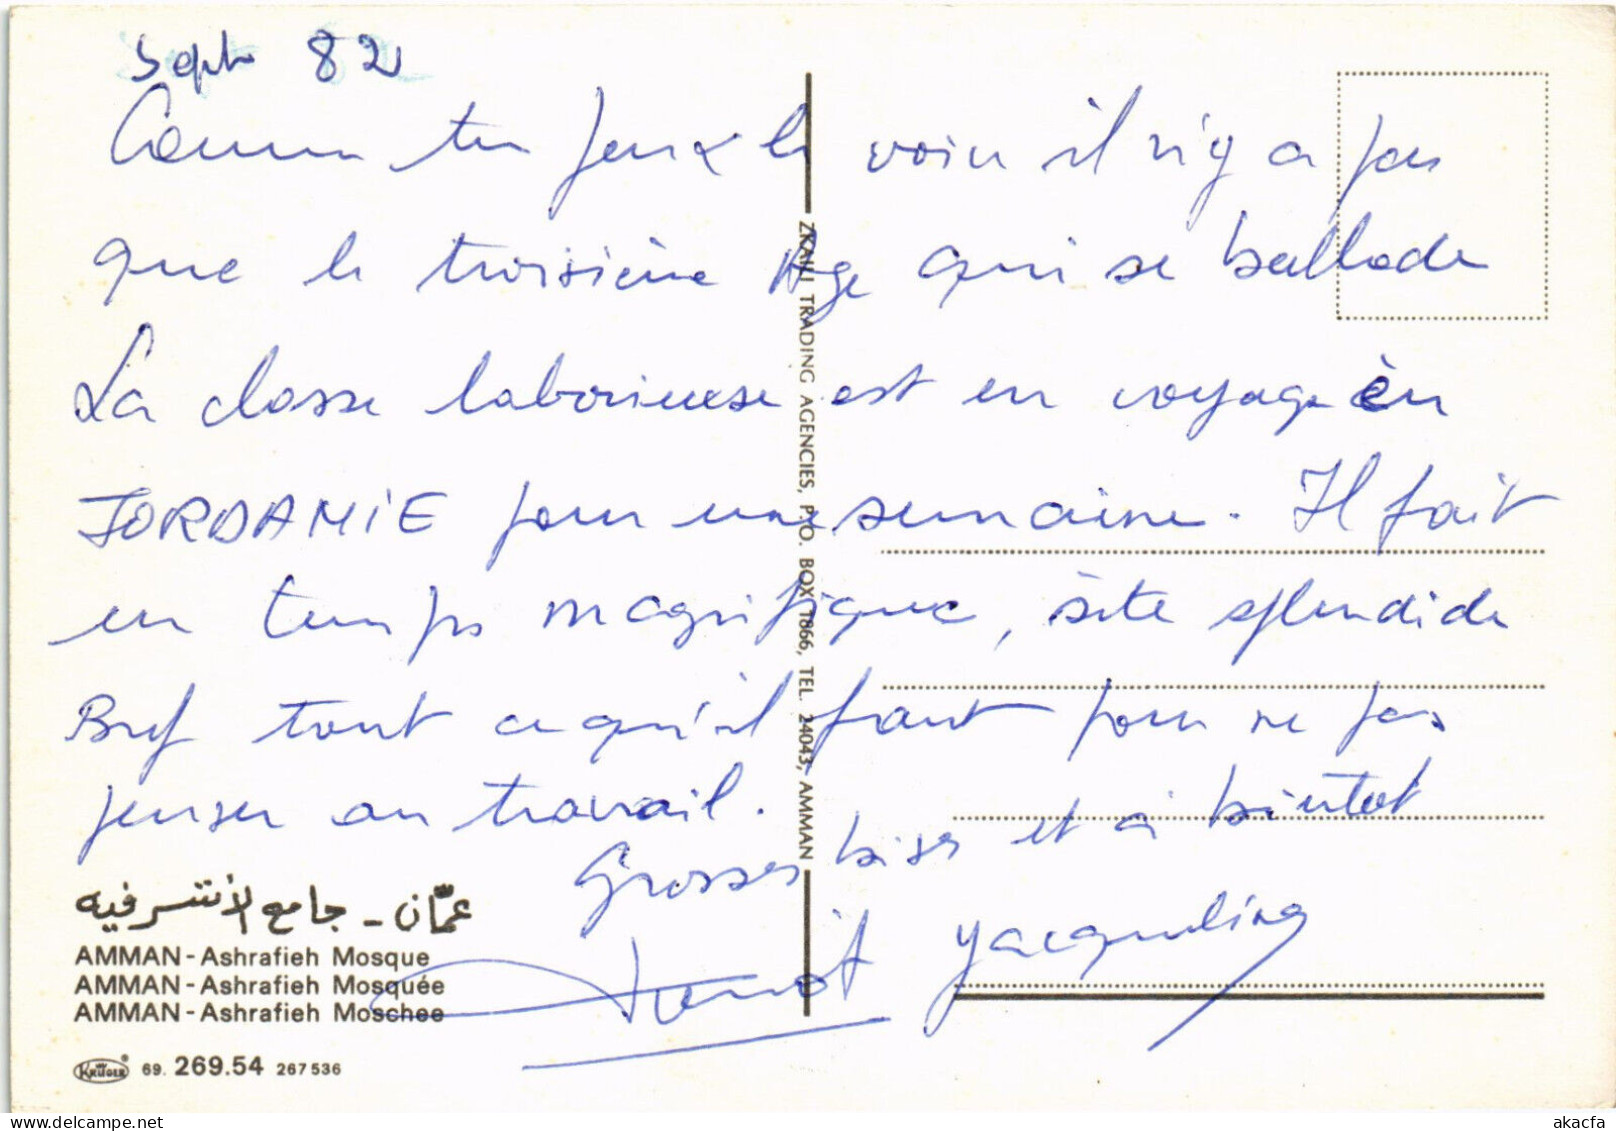 Sept 82
Comme tu peux le voir il n'y a pas
que le troisième Age qui se ballade
La classe laborieuse est en voyage en
JORDANIE pour une semaine. Il fait
un temps magnifique, site splendide
Bref tout ce qu'il faut pour ne pas
penser au travail.
Grosses bises et à bientot
Jacqueline
عمّان - جامع الأشرفيه
AMMAN - Ashrafieh Mosque
AMMAN - Ashrafieh Mosquée
AMMAN - Ashrafieh Moschee
KRÜGER 69. 269.54 267536
ZKAILI TRADING AGENCIES, P.O. BOX 1866, TEL. 24043, AMMAN
akacfa